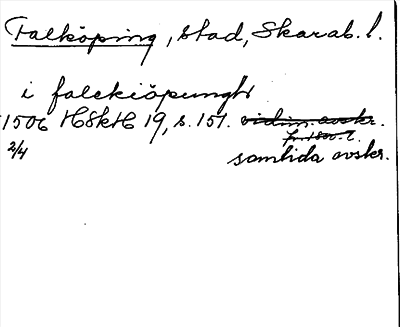 Falköping, stad, Skarab. l.
i falekiöpungh
1506 HSkH 19, s. 151. vidim. avskr.
fr. 1800-t.
2/4 samtida avskr.